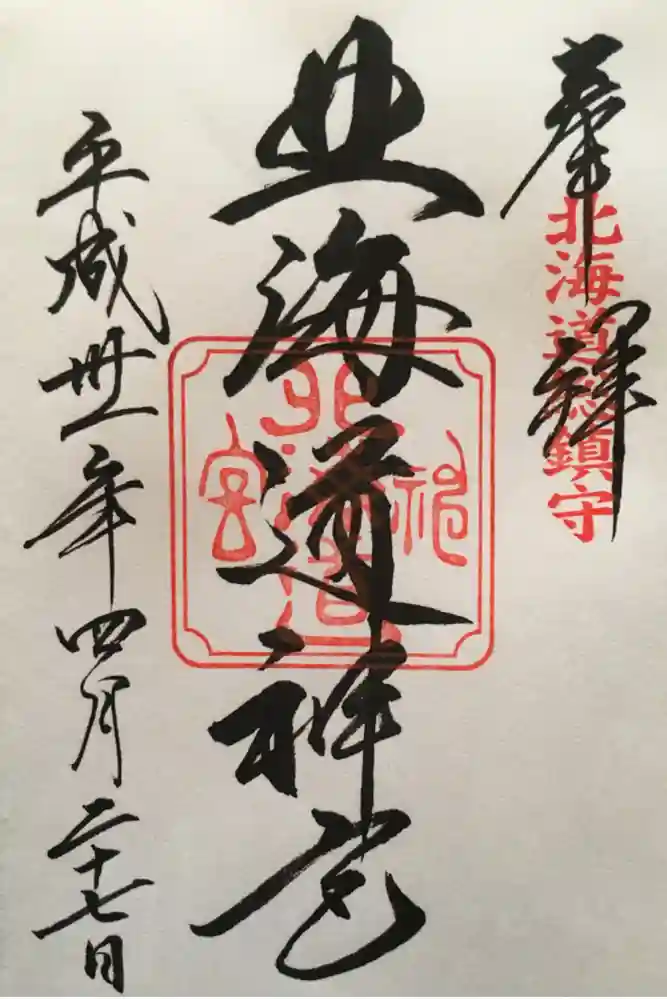 奉拝
北海道総鎮守
北海道神宮
北海道神宮
平成卅一年四月二十七日